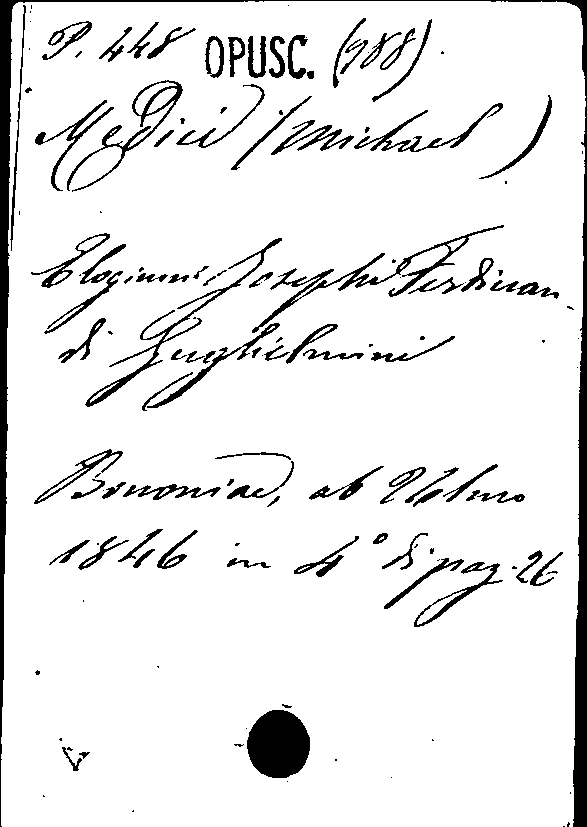 P. 448 OPUSC. (988)
Medici (Michael)
Elogium Josephi Ferdinan-
di Guglielmini
Bononiae, ab Ulmo
1846 in 4° di pag. 26
V